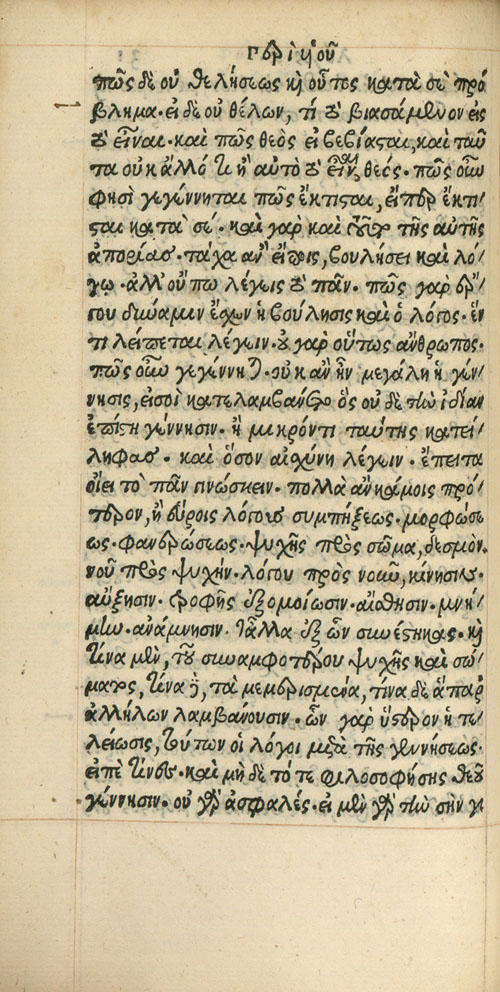 πῶς δὲ οὐ θελήσεως καὶ οὗτος κατὰ σὲ πρό
βλημα. εἰ δὲ οὐ θέλων, τί τὸ βιασάμενον εἰς
τὸ εἶναι. καὶ πῶς θεὸς εἰ βεβίασται, καὶ ταῦ
τα οὐκ ἄλλό τι ἢ αὐτὸ τὸ εἶναι, θεός. πῶς οὖν
φησὶ γεγέννηται πῶς ἔκτισται, εἴπερ ἔκτι/
σται κατὰ σέ. καὶ γὰρ καὶ τοῦτο τῆς αὐτῆς
ἀπορίας. τάχα ἂν εἴποις, βουλήσει καὶ λό/
γῳ. ἀλλ' οὔπω λέγεις τὸ πᾶν. πῶς γὰρ ἔρ/
γου δύναμιν ἔχει ἡ βούλησις καὶ ὁ λόγος. ἔτι
λείπεται λέγειν. οὐ γὰρ οὕτως ἄνθρωπος.
πῶς οὖν γεγέννηται. οὐκ ἂν ἦν μεγάλη ἡ γέν/
νησις, εἰ σοὶ κατελαμβάνετο ὃς οὐδὲ τὴν ἰδίαν
ἐπίστῃ γέννησιν. ἢ μικρόν τι ταύτης κατεί/
ληφας. καὶ ὅσον αἰσχύνη λέγειν. ἔπειτα
οἴει τὸ πᾶν γινώσκειν. πολλὰ ἂν κάμοις πρό/
τερον, ἢ εὕροις λόγους συμπήξεως. μορφώσε
ως. φανερώσεως. ψυχῆς πρὸς σῶμα, δεσμὸν.
νοῦ πρὸς ψυχήν. λόγου πρὸς νοῦν, κίνησιν.
αὔξησιν. τροφῆς ἐξομοίωσιν. αἴσθησιν. μνή/
μην. ἀνάμνησιν. τἄλλα ἐξ ὧν συνέστηκας. καὶ
τίνα μὲν, τοῦ συναμφοτέρου ψυχῆς καὶ σώ/
ματος, τίνα δὲ, τὰ μεμερισμένα, τίνα δὲ ἃ παρ'
ἀλλήλων λαμβάνουσιν. ὧν γὰρ ὕστερον ἡ τε/
λείωσις, τούτων οἱ λόγοι μετὰ τῆς γεννήσεως.
εἰπὲ τίνες. καὶ μὴ δὲ τότε φιλοσοφήσῃς θεοῦ
γέννησιν. οὐ γὰρ ἀσφαλές. εἰ μὲν γὰρ τὴν σὴν γι